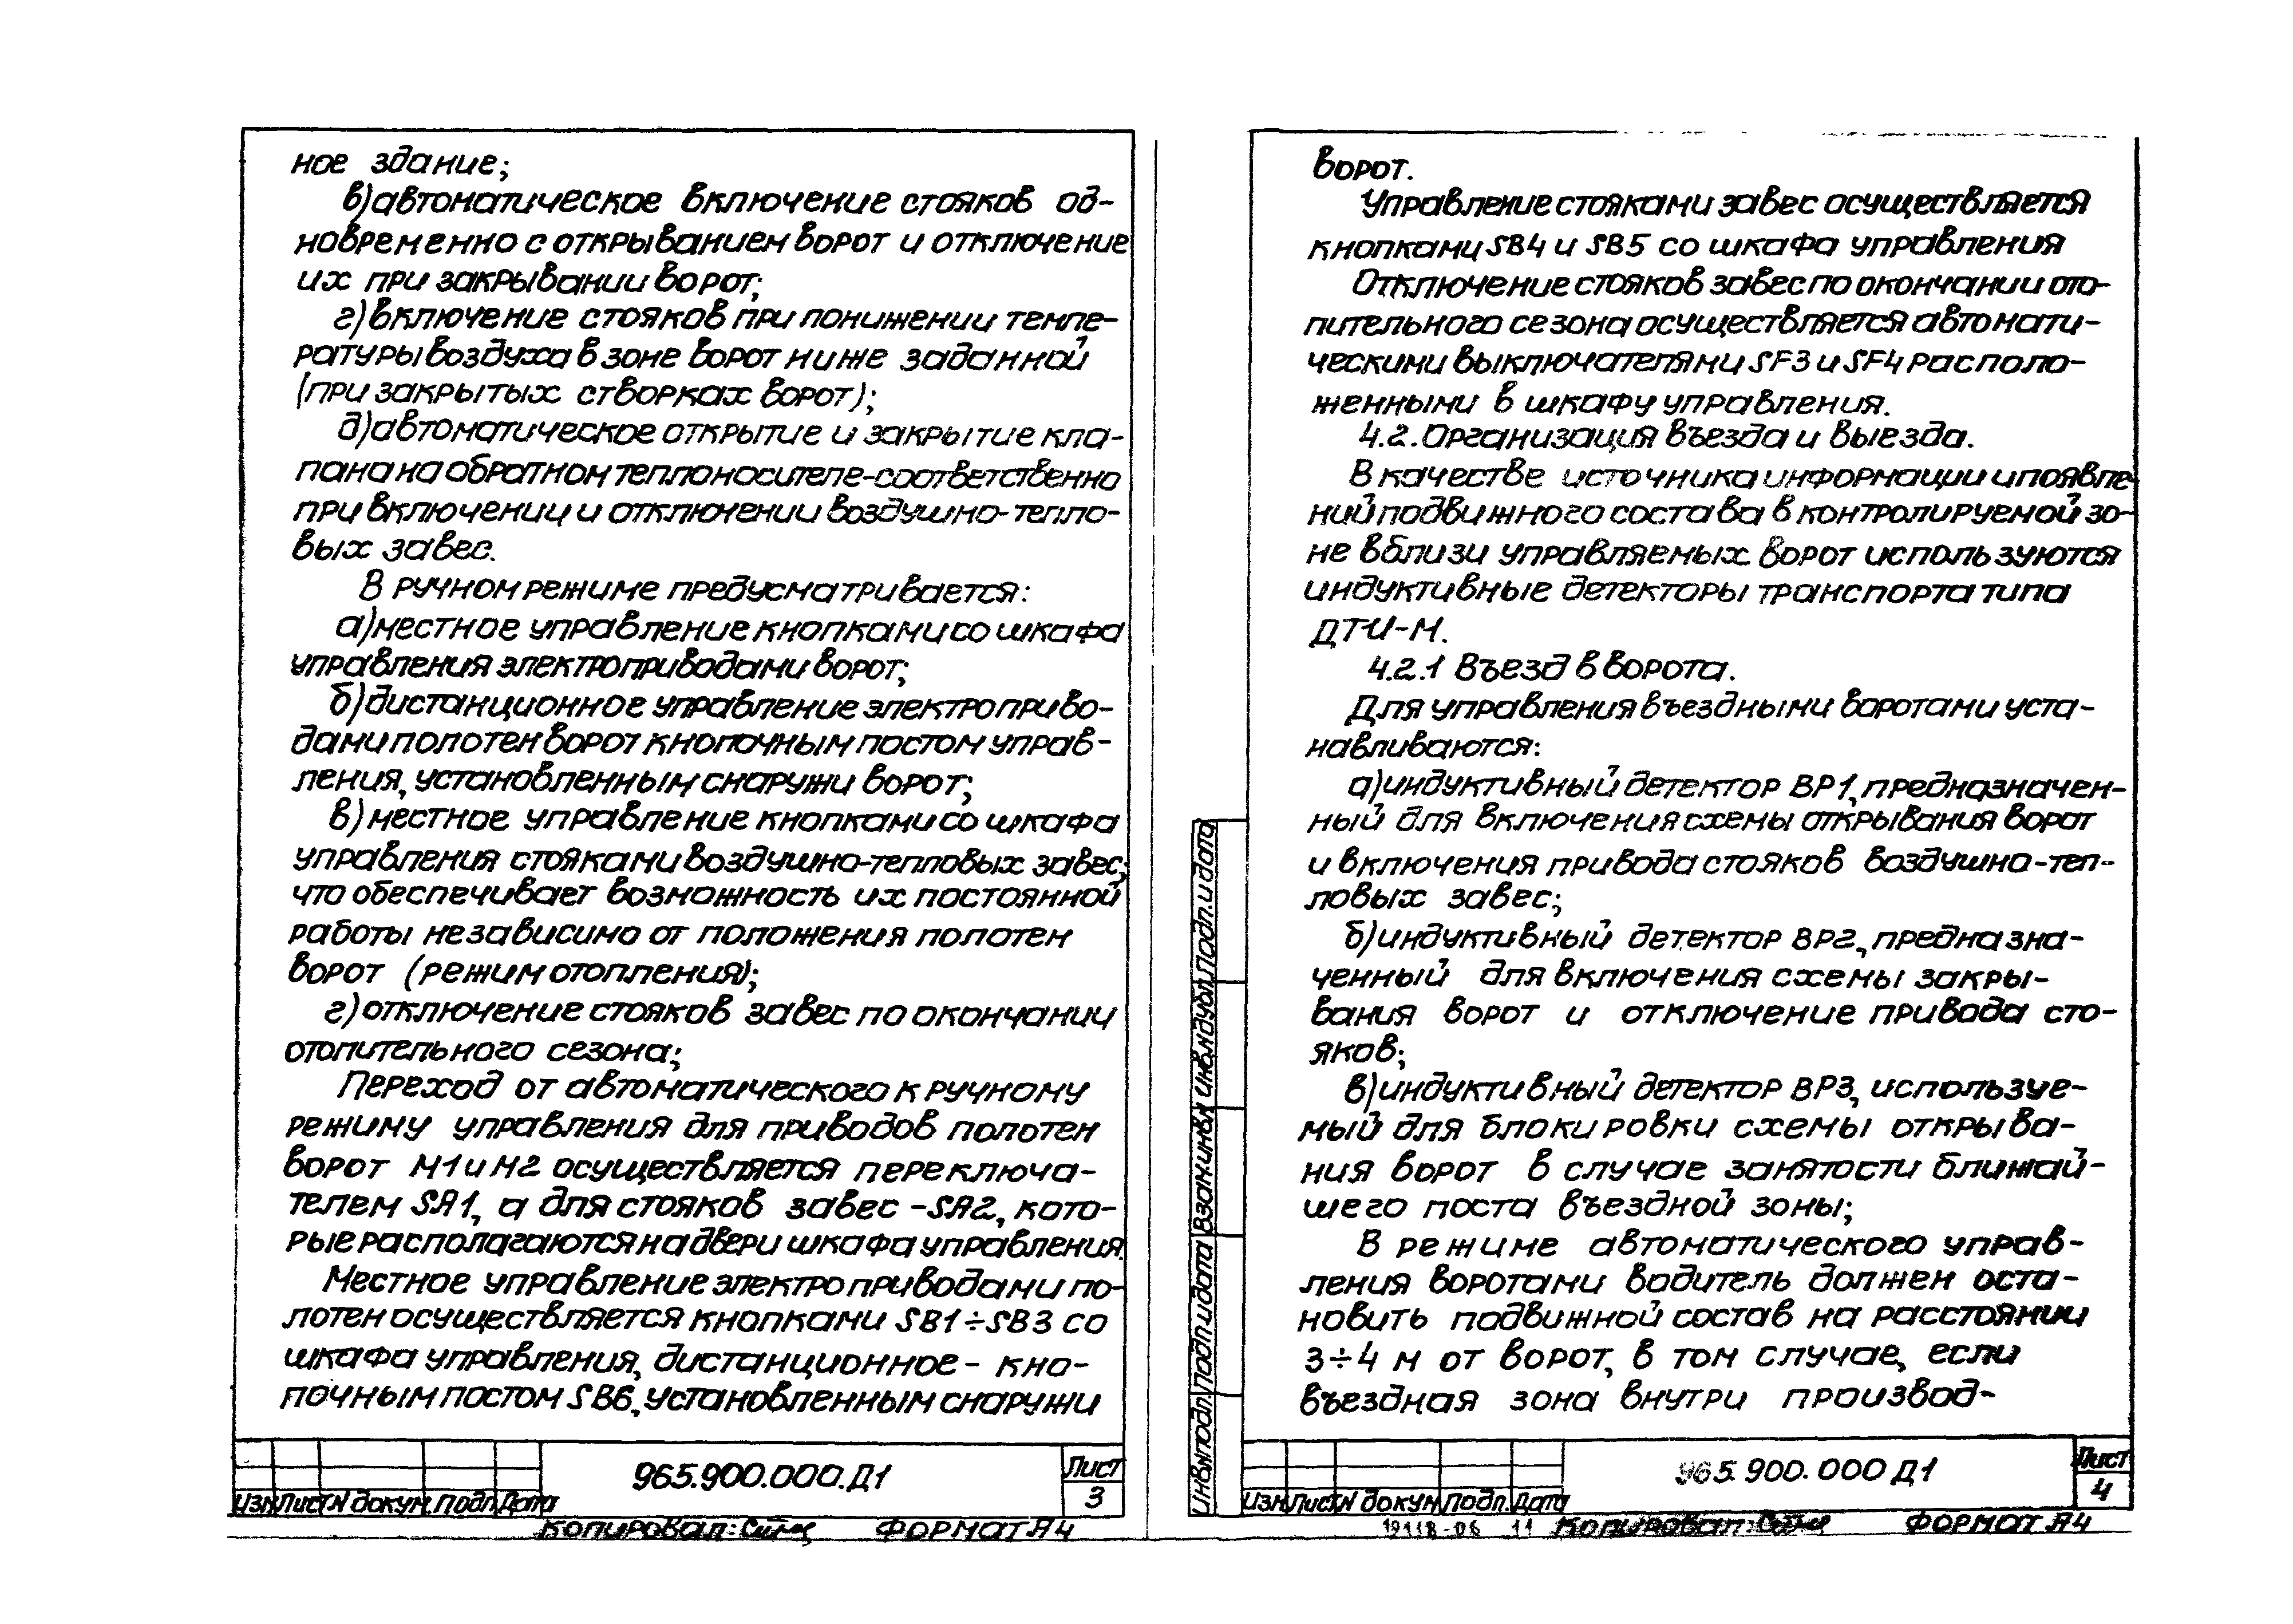 ное здание;
в) автоматическое включение стояков од-
новременно с открыванием ворот и отключение
их при закрывании ворот;
г) включение стояков при понижении темпе-
ратуры воздуха в зоне ворот ниже заданной
(при закрытых створках ворот);
д) автоматическое открытие и закрытие кла-
пана на обратном теплоносителе-соответственно
при включении и отключении воздушно-тепло-
вых завес.
В ручном режиме предусматривается:
а) местное управление кнопками со шкафа
управления электроприводами ворот;
б) дистанционное управление электроприво-
дами полотен ворот кнопочным постом управ-
ления, установленным снаружи ворот;
в) местное управление кнопками со шкафа
управления стояками воздушно-тепловых завес,
что обеспечивает возможность их постоянной
работы независимо от положения полотен
ворот (режим отопления);
г) отключение стояков завес по окончании
отопительного сезона;
Переход от автоматического к ручному
режиму управления для приводов полотен
ворот М1 и М2 осуществляется переключа-
телем SA1, а для стояков завес -SA2, кото-
рые располагаются на двери шкафа управления.
Местное управление электроприводами по-
лотен осуществляется кнопками SB1÷SB3 со
шкафа управления, дистанционное- кно-
почным постом SB6, установленным снаружи
965.900.000.Д1
Лист
3
Изм. Лист N докум. Подп. Дата
Копировал: ФОРМАТ А4
ворот.
Управление стояками завес осуществляется
кнопками SB4 и SB5 со шкафа управления
Отключение стояков завес по окончании ото-
пительного сезона осуществляется автомати-
ческими выключателями SF3 и SF4 располо-
женными в шкафу управления.
4.2. Организация въезда и выезда.
В качестве источника информации и появле
ний подвижного состава в контролируемой зо-
не вблизи управляемых ворот используются
индуктивные детекторы транспорта типа
ДТИ-М.
4.2.1 Въезд в ворота.
Для управления въездными воротами уста-
навливаются:
а) индуктивный детектор ВР1, предназначен-
ный для включения схемы открывания ворот
и включения привода стояков воздушно-теп-
ловых завес;
б) индуктивный детектор ВР2, предназна-
ченный для включения схемы закры-
вания ворот и отключение привода сто-
яков;
в) индуктивный детектор ВР3, используе-
мый для блокировки схемы открыва-
ния ворот в случае занятости ближай-
шего поста въездной зоны;
В режиме автоматического управ-
ления воротами водитель должен оста-
новить подвижной состав на расстоянии
3÷4 м от ворот, в том случае, если
въездная зона внутри производ-
Инв.N подл. Подп. и дата Взам.инв.N Инв.N дубл. Подп. и дата
965.900.000 Д1
Лист
4
Изм. Лист N докум. Подп. Дата
19118-06 11 Копировал: ФОРМАТ А4